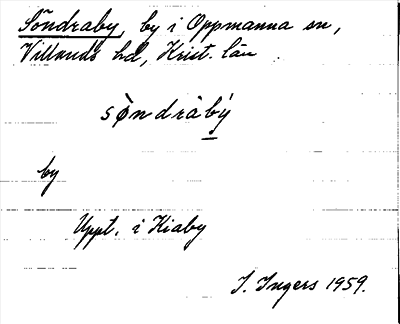 Söndraby, by i Oppmanna sn,
Villands hd, Krist. län
sǿndràbý
by
Uppt. i Kiaby
I. Ingers 1959.